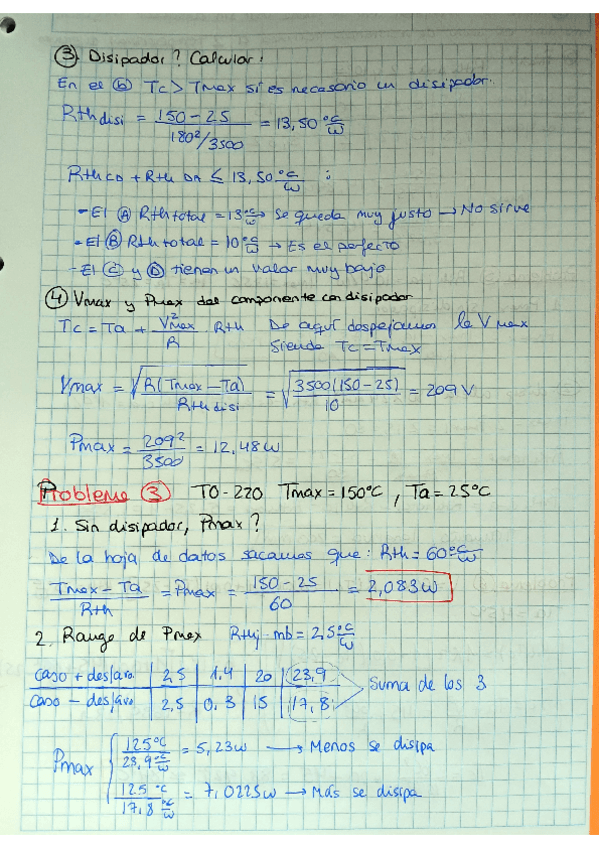 ③ Disipador? Calcular:
En el ⓑ Tc > Tmax sí es necesario un disipador.
Rth disi = 150-25 / 180²/3500 = 13,50 °C/W
Rth CD + Rth DA ≤ 13,50 °C/W :
- El Ⓐ Rth total = 13 °C/W → Se queda muy justo → No sirve
- El Ⓑ Rth total = 10 °C/W → Es el perfecto
- El Ⓒ y Ⓓ tienen un valor muy bajo
④ Vmax y Pmax del componente con disipador
Tc = Ta + V²max/R Rth De aquí despejamos la Vmax
siendo Tc = Tmax
Vmax = √(R(Tmax - Ta) / Rth disi) = √(3500(150-25) / 10) = 209 V
Pmax = 209² / 3500 = 12,48 W
Problema ③ TO-220 Tmax = 150°C, Ta = 25°C
1. Sin disipador, Pmax?
De la hoja de datos sacamos que: Rth = 60 °C/W
Tmax - Ta / Rth = Pmax = 150-25 / 60 = 2,083 W
2. Rango de Pmax Rthj-mb = 2,5 °C/W
caso + desfavo. | 2,5 | 1.4 | 20 | 23,9
caso - desfavo. | 2,5 | 0.3 | 15 | 17,8
Suma de los 3
Pmax { 125°C / 23,9 °C/W = 5,23 W → Menos se disipa
125 °C / 17,8 °C/W = 7,0225 W → Más se disipa